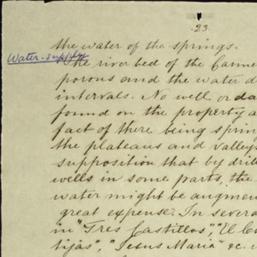 23
the water of the springs.
Water-supply
The river bed of the
porous and the water d
intervals. No well or da
found on the property a
fact of there being sprin
the plateaus and valley
supposition that by dril
wells in some parts, the
water might be augmen
great expense. In severa
in "Tres Castillos", "El C
tijas", "Jesus Maria" &c. w